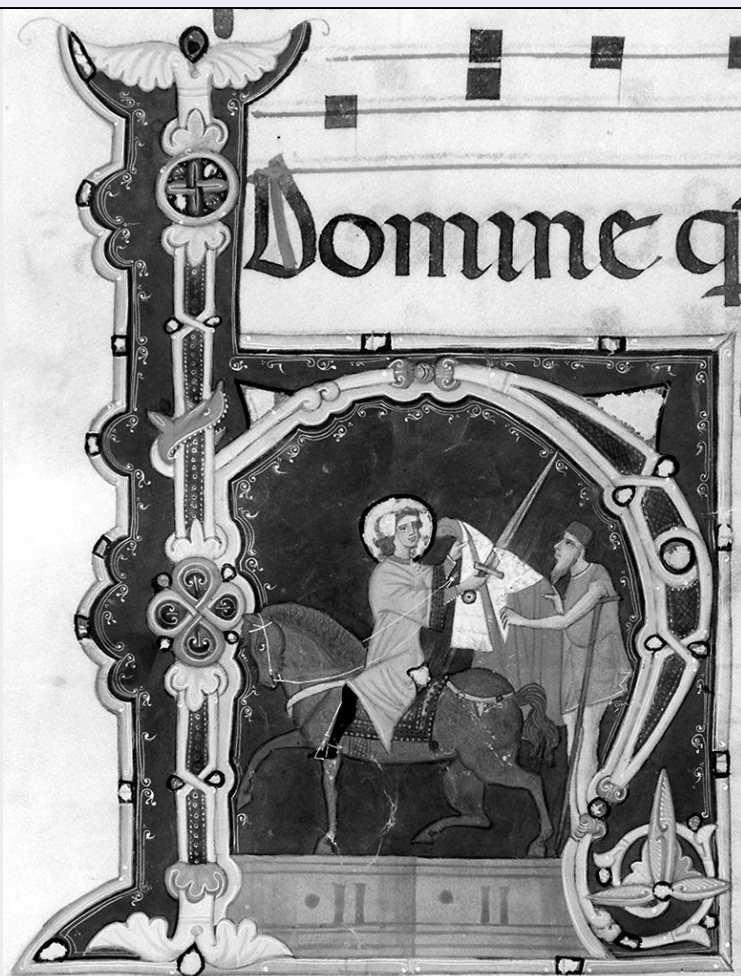 Domine q